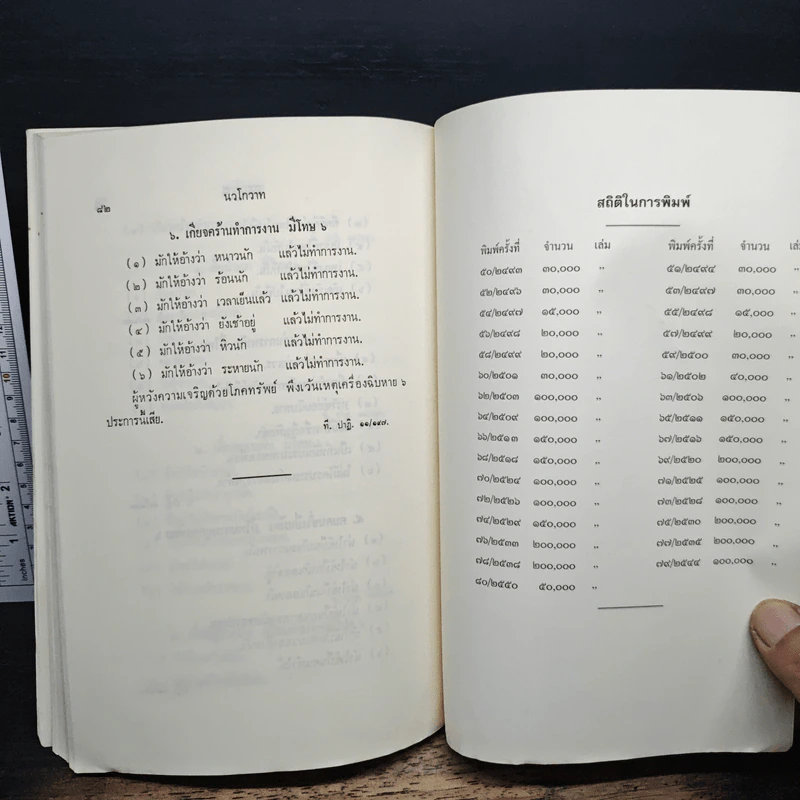 ๘๒
นวโกวาท
๖. เกียจคร้านทำการงาน มีโทษ ๖
(๑) มักให้อ้างว่า หนาวนัก แล้วไม่ทำการงาน.
(๒) มักให้อ้างว่า ร้อนนัก แล้วไม่ทำการงาน.
(๓) มักให้อ้างว่า เวลาเย็นแล้ว แล้วไม่ทำการงาน.
(๔) มักให้อ้างว่า ยังเช้าอยู่ แล้วไม่ทำการงาน.
(๕) มักให้อ้างว่า หิวนัก แล้วไม่ทำการงาน.
(๖) มักให้อ้างว่า ระหายนัก แล้วไม่ทำการงาน.
ผู้หวังความเจริญด้วยโภคทรัพย์ พึงเว้นเหตุเครื่องฉิบหาย ๖
ประการนี้เสีย.
ที. ปาฏิ. ๑๑/๑๙๗.
สถิติในการพิมพ์
พิมพ์ครั้งที่ จำนวน เล่ม พิมพ์ครั้งที่ จำนวน
๕๐/๒๔๙๓ ๓๐,๐๐๐ ,, ๕๑/๒๔๙๔ ๓๐,๐๐๐ ,,
๕๒/๒๔๙๖ ๓๐,๐๐๐ ,, ๕๓/๒๔๙๗ ๓๐,๐๐๐ ,,
๕๔/๒๔๙๗ ๑๕,๐๐๐ ,, ๕๕/๒๔๙๘ ๑๕,๐๐๐ ,,
๕๖/๒๔๙๘ ๒๐,๐๐๐ ,, ๕๗/๒๔๙๙ ๒๐,๐๐๐ ,,
๕๘/๒๔๙๙ ๒๐,๐๐๐ ,, ๕๙/๒๕๐๐ ๓๐,๐๐๐ ,,
๖๐/๒๕๐๑ ๓๐,๐๐๐ ,, ๖๑/๒๕๐๒ ๔๐,๐๐๐ ,,
๖๒/๒๕๐๓ ๑๐๐,๐๐๐ ,, ๖๓/๒๕๐๖ ๑๐๐,๐๐๐ ,,
๖๔/๒๕๐๙ ๑๐๐,๐๐๐ ,, ๖๕/๒๕๑๑ ๑๕๐,๐๐๐ ,,
๖๖/๒๕๑๓ ๑๕๐,๐๐๐ ,, ๖๗/๒๕๑๖ ๑๕๐,๐๐๐ ,,
๖๘/๒๕๑๘ ๑๕๐,๐๐๐ ,, ๖๙/๒๕๒๐ ๒๐๐,๐๐๐ ,,
๗๐/๒๕๒๔ ๑๐๐,๐๐๐ ,, ๗๑/๒๕๒๕ ๑๐๐,๐๐๐ ,,
๗๒/๒๕๒๖ ๑๐๐,๐๐๐ ,, ๗๓/๒๕๒๘ ๑๐๐,๐๐๐ ,,
๗๔/๒๕๒๙ ๑๕๐,๐๐๐ ,, ๗๕/๒๕๓๐ ๒๐๐,๐๐๐ ,,
๗๖/๒๕๓๓ ๒๐๐,๐๐๐ ,, ๗๗/๒๕๓๕ ๒๐๐,๐๐๐ ,,
๗๘/๒๕๓๘ ๒๐๐,๐๐๐ ,, ๗๙/๒๕๔๔ ๑๐๐,๐๐๐ ,,
๘๐/๒๕๕๐ ๕๐,๐๐๐ ,,